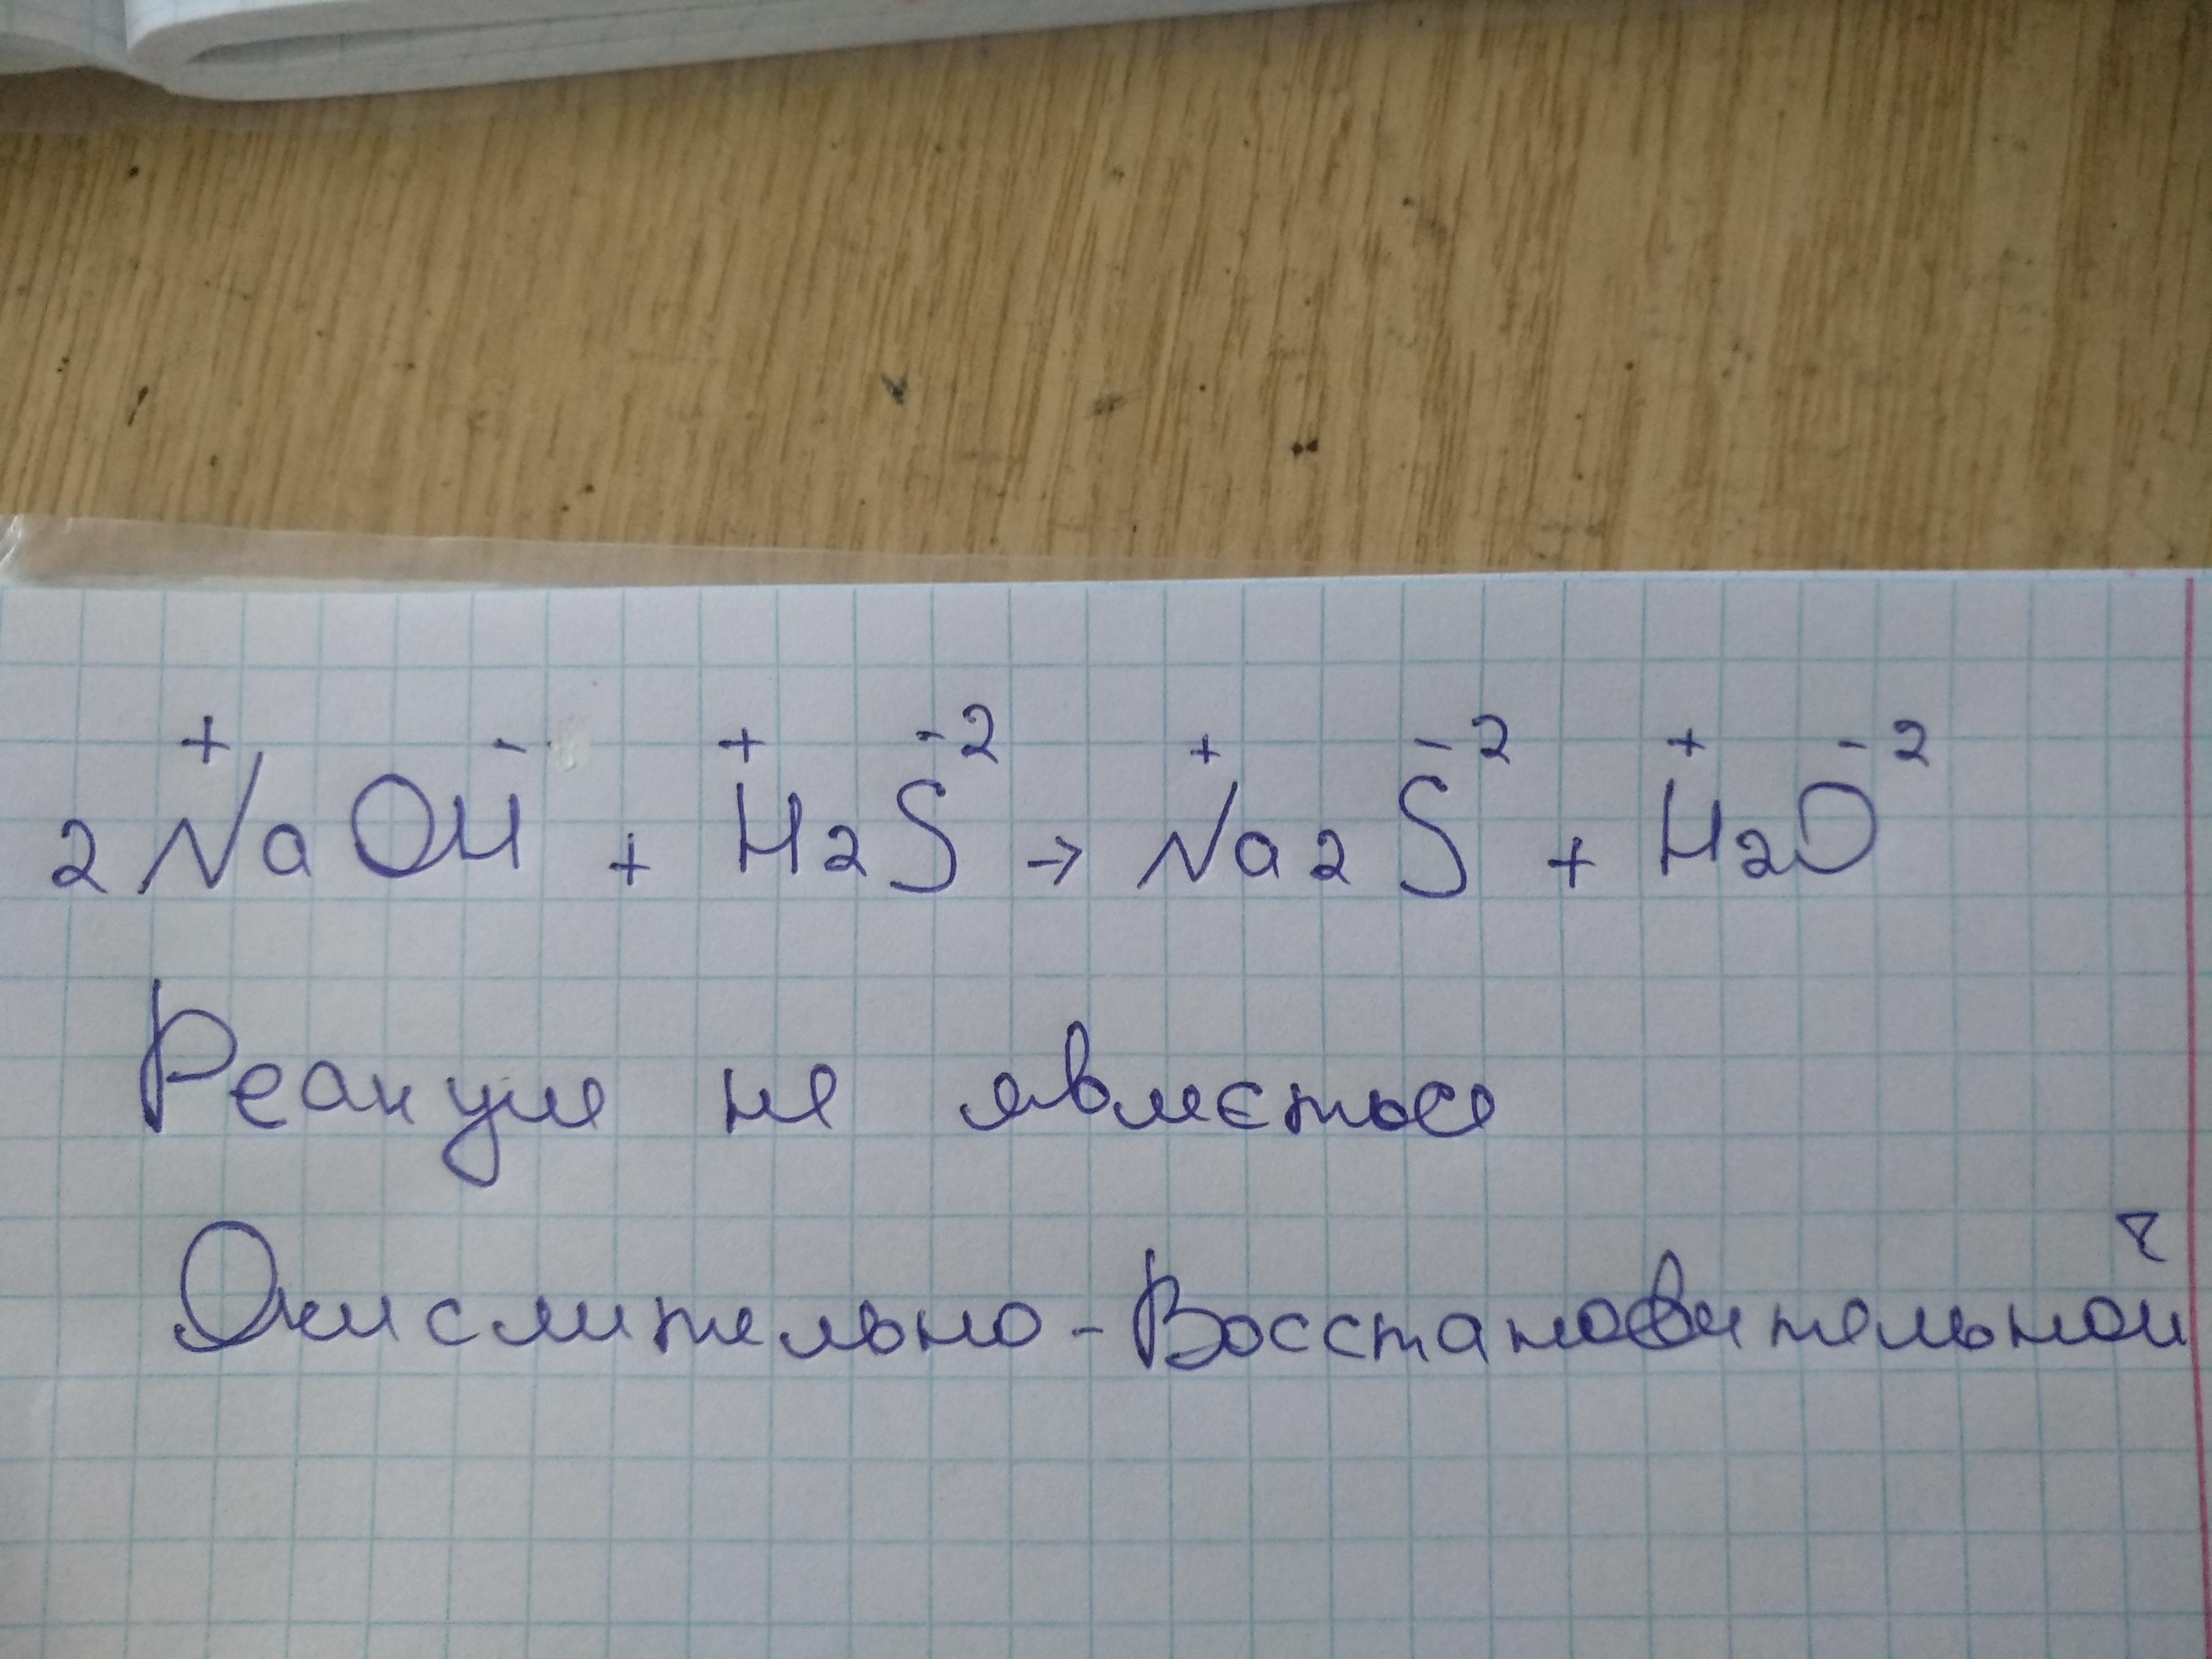 2Na⁺OH⁻ + H₂⁺S⁻² → Na₂⁺S⁻² + H₂⁺O⁻²
Реакция не явлється
Окислительно-Восстановительной